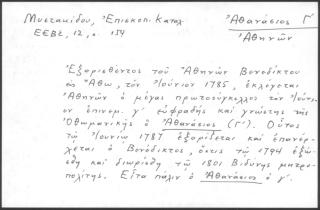 Μυστακίδου, Ἐπισκοπ. Καταλ. Ἀθανάσιος Γ'
ΕΕΒΣ, 12, σ. 154 Ἀθηνῶν
Ἐξορισθέντος τοῦ Ἀθηνῶν Βενεδίκτου
εἰς Ἄθω, τὸν Ἰούνιον 1785, ἐκλέγεται
Ἀθηνῶν ὁ μέγας πρωτοσύγκελλος τὸν
ἐπινομ. γ' καὶ γνώστης τῆς
Ὀθωμανικῆς ὁ Ἀθανάσιος (Γ'). Οὗτος
τῷ Ἰουνίῳ 1787 ἐξορίζεται καὶ ἐπανέρ-
χεται ὁ Βενέδικτος, ὅστις τῷ 1794 ἐξώ-
σθη καὶ διωρίσθη τῷ 1801 Βιδύνης μητρο-
πολίτης. Εἶτα πάλιν ὁ Ἀθανάσιος ὁ γ'.